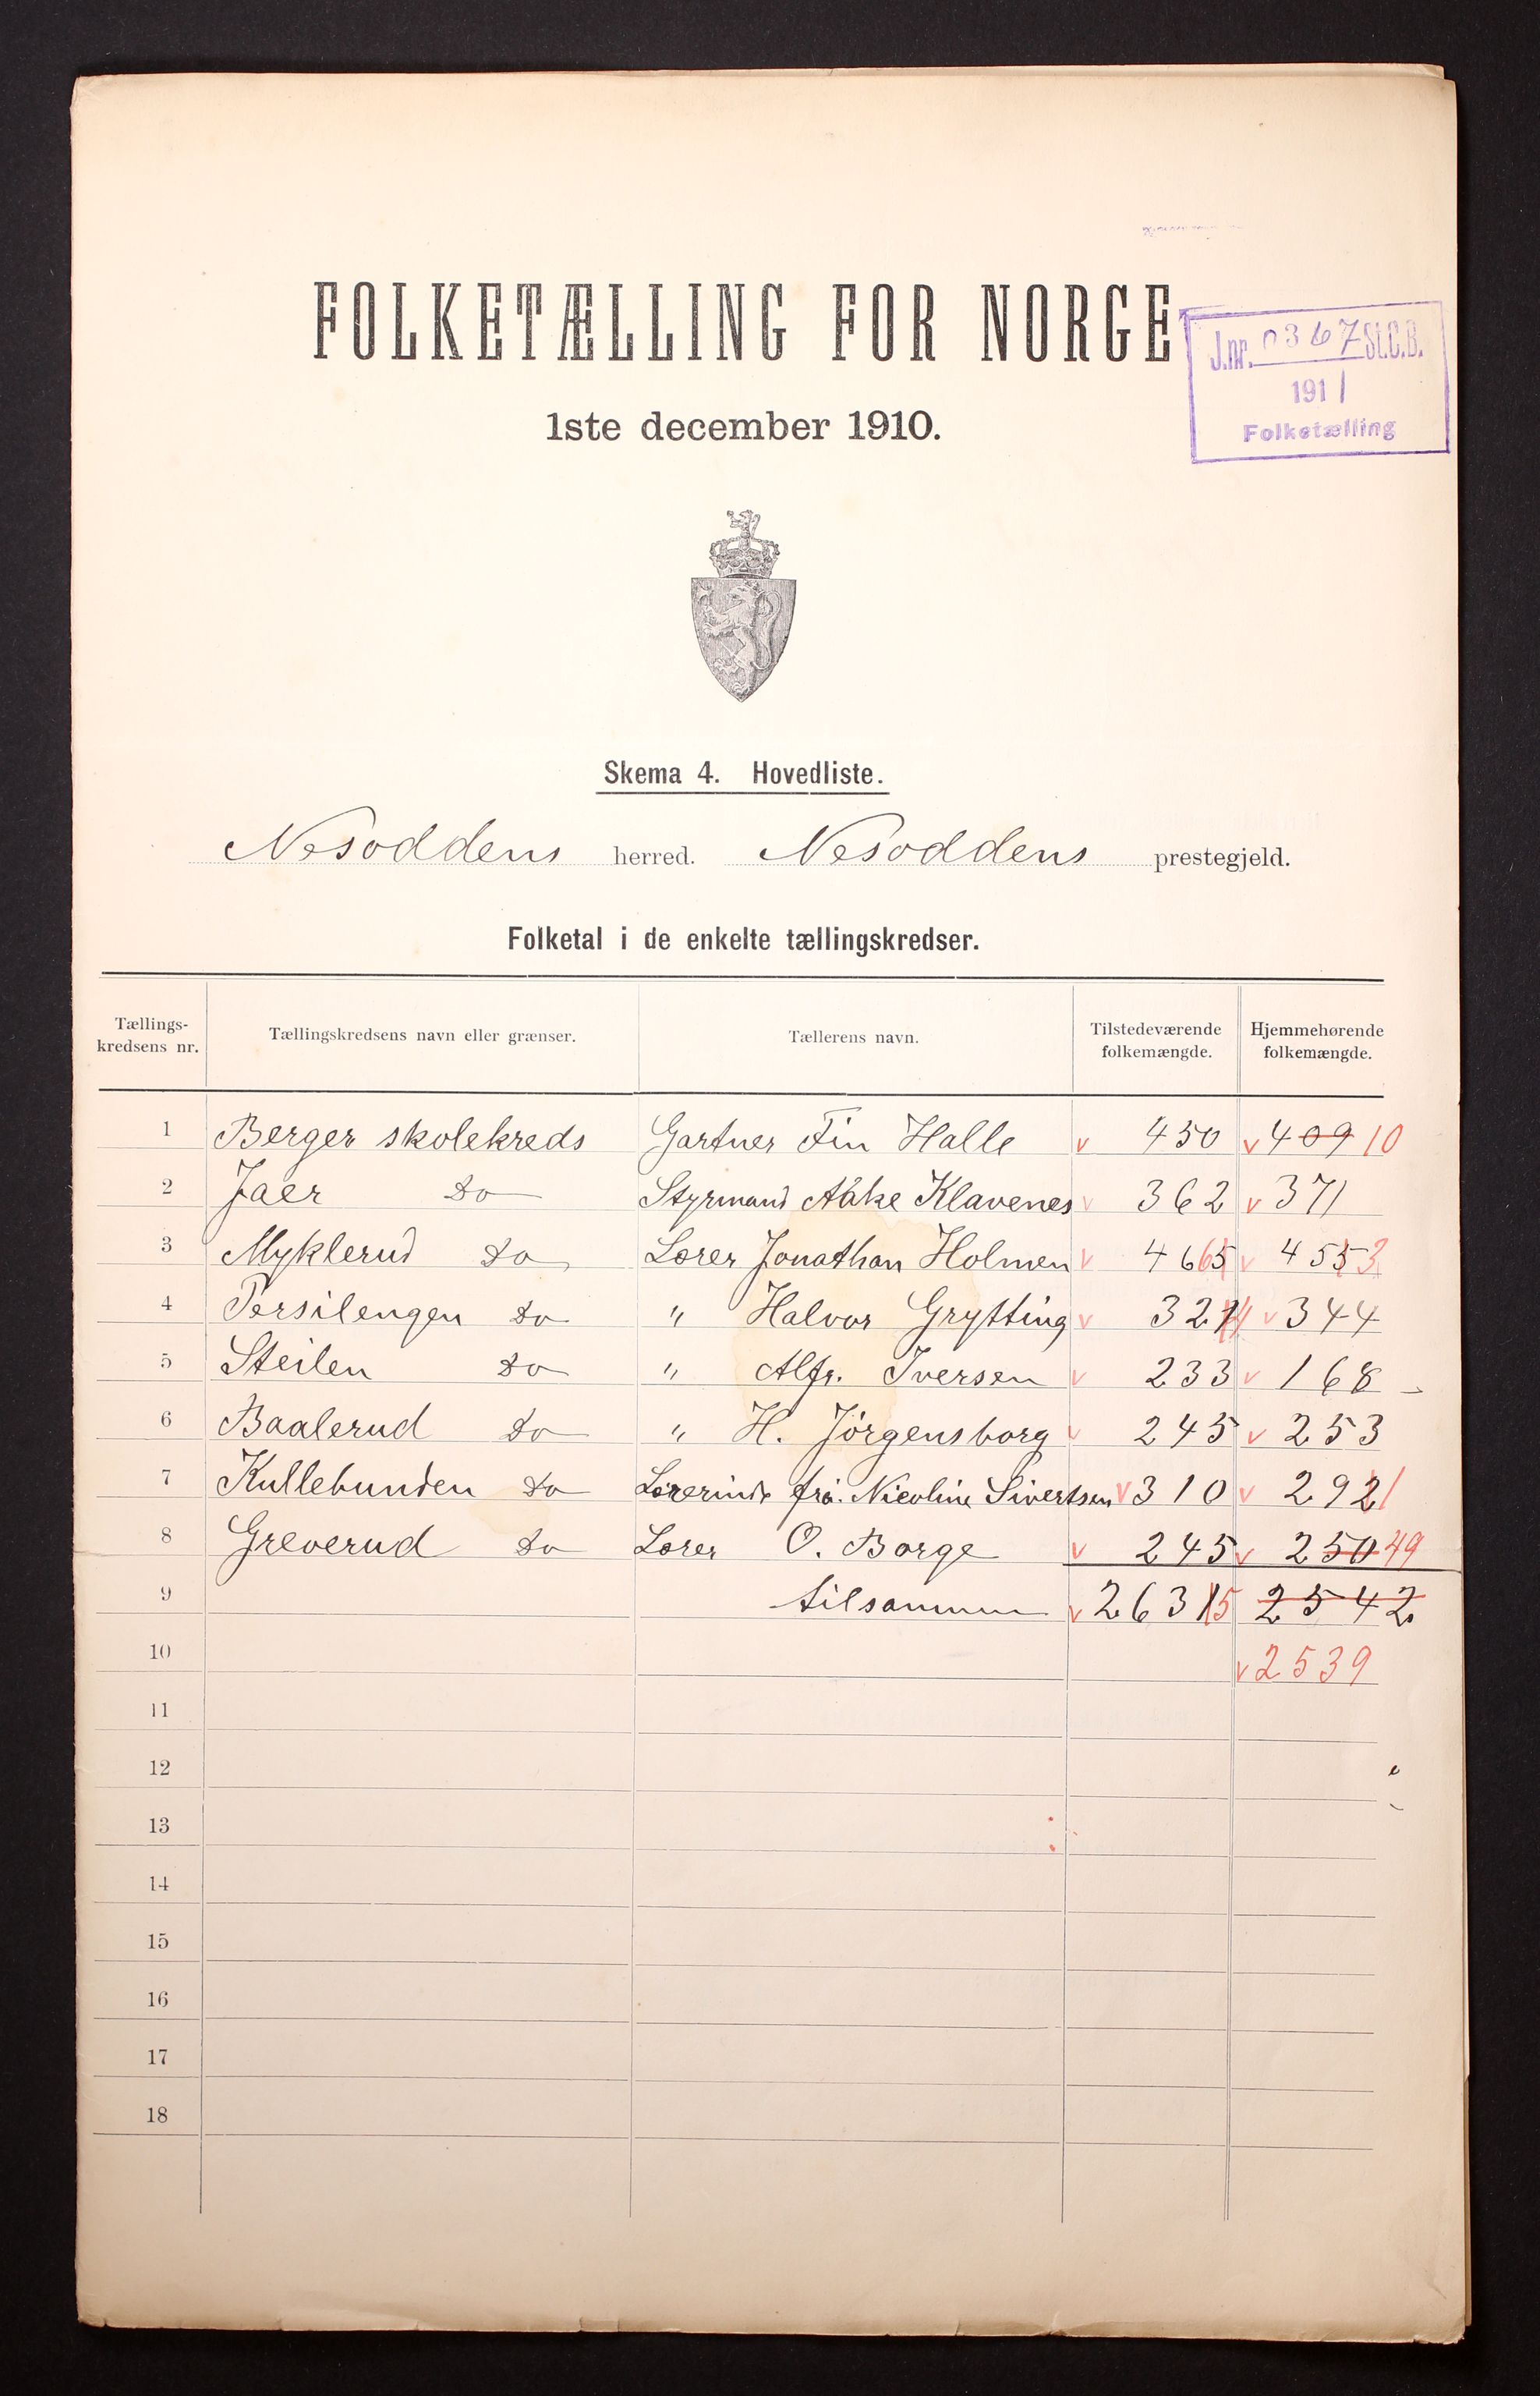 FOLKETÆLLING FOR NORGE
J.nr. 0367 St.C.B.
1911
Folketælling
1ste december 1910.
Skema 4. Hovedliste.
Nesoddens herred. Nesoddens prestegjeld.
Folketal i de enkelte tællingskredser.
Tællings-kredsens nr. Tællingskredsens navn eller grænser. Tællerens navn. Tilstedeværende folkemængde. Hjemmehørende folkemængde.
1 Berger skolekreds Gartner Fin Halle v 450 v 409 10
2 Jaer do Styrmand Aake Klavenes v 362 v 371
3 Myklerud do Lærer Jonathan Holmen v 4665 v 4553
4 Persilengen do " Halvor Grytting v 321 v 344
5 Steilen do " Alfr. Iversen v 233 v 168
6 Baalerud do " H. Jörgensborg v 245 v 253
7 Kullebunden do Lærerinde frö. Nicoline Sivertsen v 310 v 2921
8 Greverud do Lærer O. Borge v 245 v 250 49
9 tilsammen v 26315 2542
10 v 2539
11
12
13
14
15
16
17
18